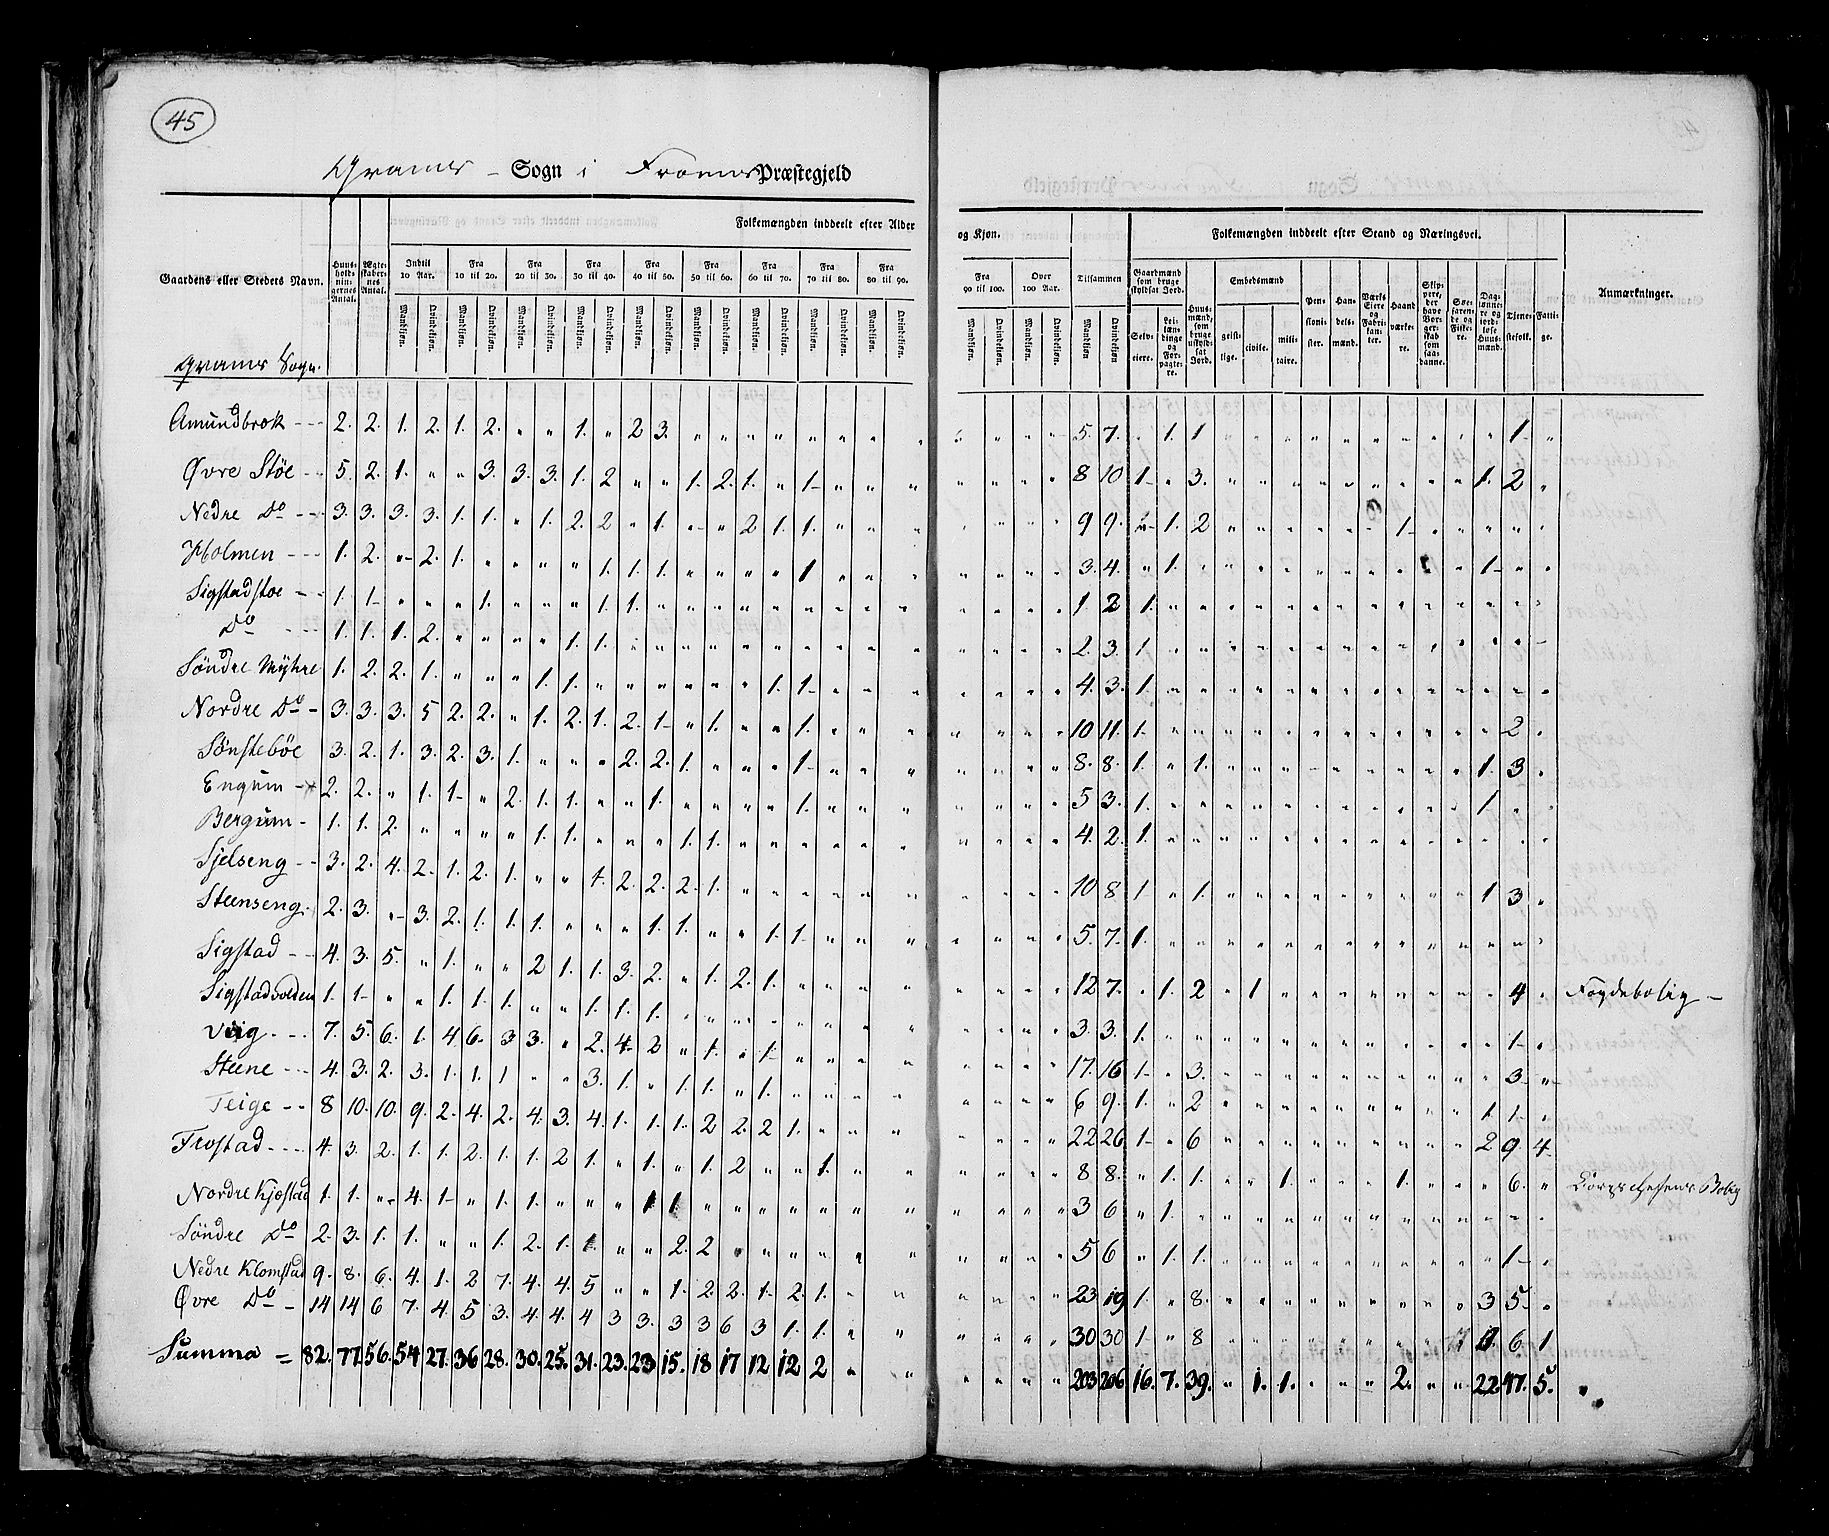 45
Sogn i Præstegjeld
Folkemængden inddeelt efter Alder og Kjøn.
Folkemængden inddeelt efter Stand og Næringsvei.
Gaardens eller Stedets Navn.
Huus- hold- nin- gernes Antal.
Ægte- skaber- nes Antal.
Indtil 10 Aar.
Fra 10 til 20.
Fra 20 til 30.
Fra 30 til 40.
Fra 40 til 50.
Fra 50 til 60.
Fra 60 til 70.
Fra 70 til 80.
Fra 80 til 90.
Fra 90 til 100.
Over 100 Aar.
Tilsammen
Mandkiøn. Qvindekiøn.
Gaardmænd som bruge skyldsat Jord.
Selv- eiere.
Lei- læn- dinge og For- pagte- re.
Huus- mænd, som bruge uskyldsat Jord.
Embedsmænd
geist- lige. civile. mili- taire.
Pen- sioni- ster.
Han- dels- mænd.
Værks Eiere og Fabri- kan- ter.
Haand værke- re.
Skip- pere, der have Bor- ger- skab som saa- danne.
Søe- farende og Fiske- re.
Dag- lønne- re og jord- løse Huus- mænd.
Tjene- stefolk.
Fatti- ge.
Anmærkninger.
Sogn.
Amundbrok 2. 2. 1. 2. 1. 2. " " 1. " 2 3. 5. 7. " 1. 1 1 "
Øvre Støe 5. 2. 1. " " 3. 3. 3. 1. 2 " " 1. 2. 1. " 1 8 10 1. " 3. 1. 2 "
Nedre Do 3. 3. 3. 3. 1. 1. " 1. 2. 2 " 1. " " 2 1. 1. 9 9. " 1. 2 1
Holmen 1. 2. " 2. 1. " " " " 1. 1. 1. " " " " 1 3. 4. " 1. 1 " "
Sigstadstoe 1. 1 " " " 1. " " " 1. 1. 1. 2 1.
Do 1. 1. 1. 2. " " " " 1. 1. 2. 3. 1.
Søndre Myhre 1. 2. 2. 1. " " " 1. 1. " " " " " " 1. 1. 4. 3. 1.
Nordre Do 3. 3. 3. 5 2. 2. " 1. 2. 1. 2. 1 " 1. " " 1. 10 11. 1. 2 "
Sønstebøe 3. 2. 1. 3. 2. 3. 1. " " " 2. 2. 1. " " " 1 8. 8. 1. " 1. 1. 3 "
Engum 2. 2. " 1. 1 " 2. 1. 1. " " 1. " " " " 1. 5 3. 1. 1 " "
Bergum 1. 1. 2. " " " " 1. 1. " " " 1. 1. 4. 2. 1.
Sjelseng 3. 2. 4. 2. 1. 2. 1. " " 1. 2. 2. 2. 1. 10 8 1. " 1. 1 3 "
Steenseng 2. 3. " 3. 2. 1. 1. 1. " " " 1. 1. " " 1. 1 5. 7. 1.
Sigstad 4. 3. 5. " 1. " " 2 1. 1. 3. 2. " 1. 2. 1. 12 7. " 1. 2 " 1 4 " Fogdebolig
Sigstadvolden 1. 1 " " 1. 1. 1. " " 1. 1. 1. 3. 3. 1. 1 "
Viig 7. 5. 6. 1. 4 6. 3 3. " 2. 4. 2 " 1. " 1 17. 16 1. " 3. 3 "
Steene 4. 3. 2. 3. 1. 1. 1 " " 3. 1. " 1. 1. " 1. 6 9. 1. " 2 1. 1. "
Teige 8 10. 10. 9. 2. 4. 2. 4. 3. 4. 1. 1. 1. 2 2. 2 1. 22 26 1. " 6 2 9. 4
Frostad 4. 3. 2. 1. 1. 2. 1. 1. 2 1. " 1. " 1. 2 " " 1. 8 8. " 1. 1. " " 1. 1. 6. " Bolig
Nordre Kjøstad 1. 1. " " 4. 1 " 1. 1. " " " 1 1. 3 6 " 1.
Søndre Do 2. 3. 1. 1. " " 1. 2. 1. 1 " " 2. 2 5 6 " 1. 1. 1 "
Nedre Klomstad 9. 8. 6. 4. 1. 2 7. 4. 4. 5 " " 1. 2 2. 1. 2. 1. 23 19 1. " 8. 3 5. "
Øvre Do 14 14 6 7. 4. 5 3. 4. 4. 4 3 3. 3 3 6 3 1. 1. 30 30 1 " 8 6 1
Summa 82. 77. 56. 54 27. 36 28. 30. 25. 31. 23. 23 15. 18 17 12 12 2 203 206 16. 7. 39. " 1. 1. 2. 22 47. 5.